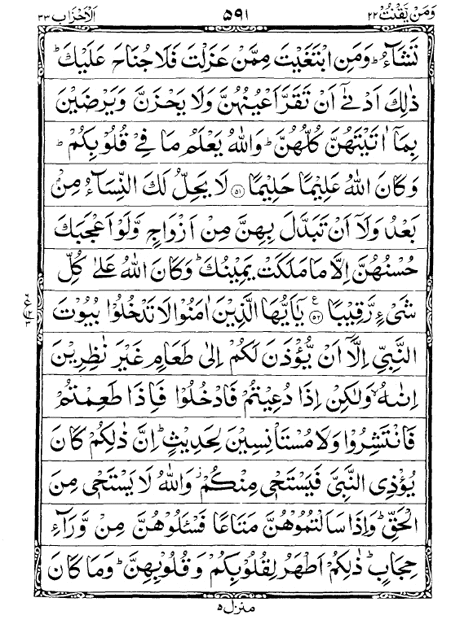 وَمَنْ يَّقْنُتْ ۲۲ ۵۹۱ اَلْاَحْزَاب ۳۳
تَشَآءُ ؕ وَمَنِ ابْتَغَيْتَ مِمَّنْ عَزَلْتَ فَلَا جُنَاحَ عَلَيْكَ ؕ
ذٰلِكَ اَدْنٰٓى اَنْ تَقَرَّ اَعْيُنُهُنَّ وَلَا يَحْزَنَّ وَيَرْضَيْنَ
بِمَاۤ اٰتَيْتَهُنَّ كُلُّهُنَّ ؕ وَاللّٰهُ يَعْلَمُ مَا فِيْ قُلُوْبِكُمْ ؕ
وَكَانَ اللّٰهُ عَلِيْمًا حَلِيْمًا ﴿۵۱﴾ لَا يَحِلُّ لَكَ النِّسَآءُ مِنْۢ
بَعْدُ وَلَاۤ اَنْ تَبَدَّلَ بِهِنَّ مِنْ اَزْوَاجٍ وَّلَوْ اَعْجَبَكَ
حُسْنُهُنَّ اِلَّا مَا مَلَكَتْ يَمِيْنُكَ ؕ وَكَانَ اللّٰهُ عَلٰى كُلِّ
شَيْءٍ رَّقِيْبًا ﴿۵۲﴾ ع يٰۤاَيُّهَا الَّذِيْنَ اٰمَنُوْا لَا تَدْخُلُوْا بُيُوْتَ
النَّبِيِّ اِلَّاۤ اَنْ يُّؤْذَنَ لَكُمْ اِلٰى طَعَامٍ غَيْرَ نٰظِرِيْنَ
اِنٰىهُ ۙ وَلٰكِنْ اِذَا دُعِيْتُمْ فَادْخُلُوْا فَاِذَا طَعِمْتُمْ
فَانْتَشِرُوْا وَلَا مُسْتَاْنِسِيْنَ لِحَدِيْثٍ ؕ اِنَّ ذٰلِكُمْ كَانَ
يُؤْذِى النَّبِيَّ فَيَسْتَحْيٖ مِنْكُمْ ۫ وَاللّٰهُ لَا يَسْتَحْيٖ مِنَ
الْحَقِّ ؕ وَاِذَا سَاَلْتُمُوْهُنَّ مَتَاعًا فَسْـَٔلُوْهُنَّ مِنْ وَّرَآءِ
حِجَابٍ ؕ ذٰلِكُمْ اَطْهَرُ لِقُلُوْبِكُمْ وَقُلُوْبِهِنَّ ؕ وَمَا كَانَ
منزل ۵